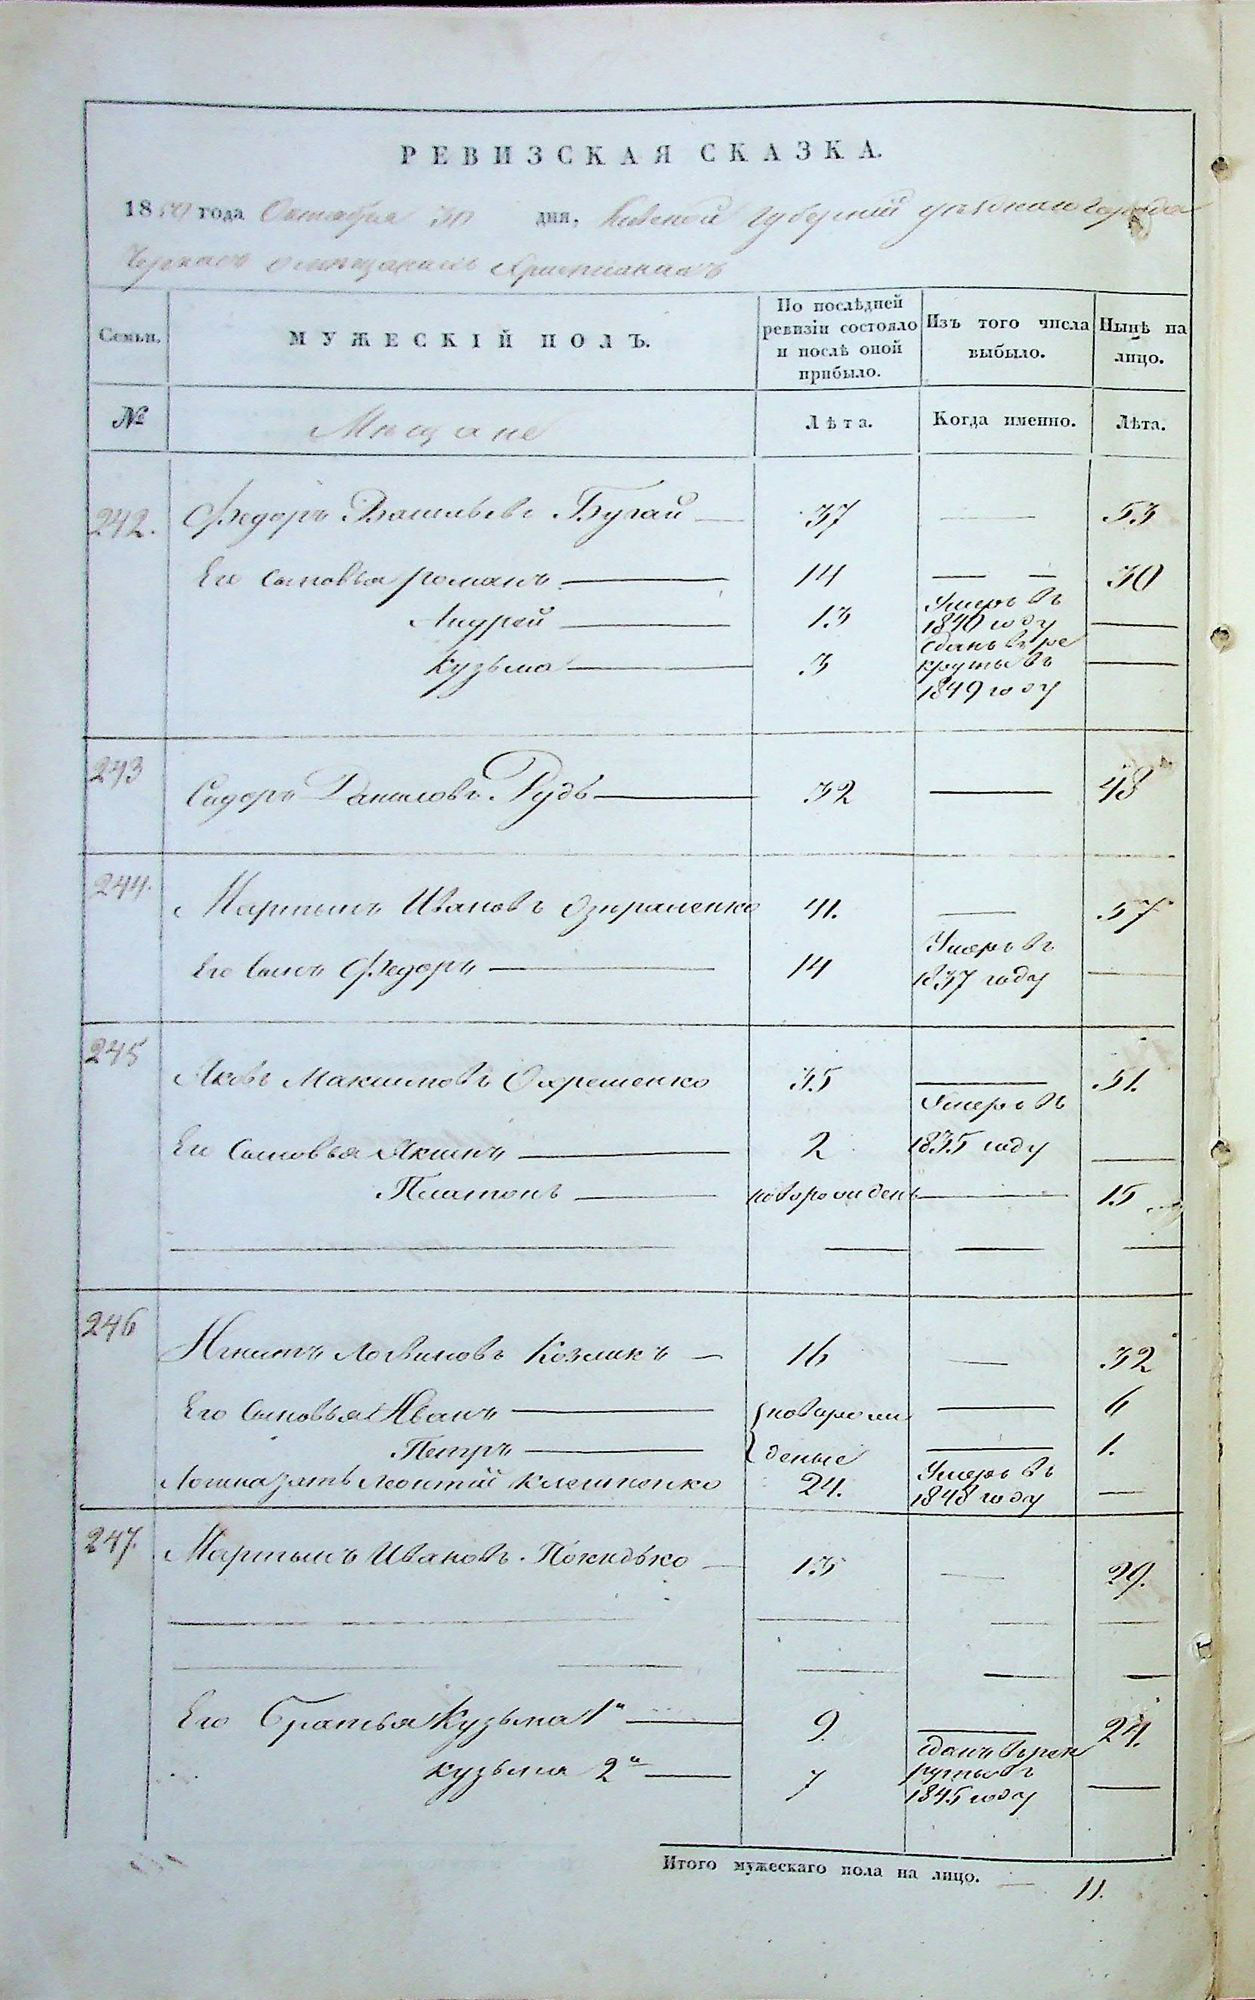 РЕВИЗСКАЯ СКАЗКА.
1850 года Октября 30 дня, Киевской Губерніи уѣзднаго города
Черкасъ о мѣщанахъ Христіанахъ
Семьи. МУЖЕСКІЙ ПОЛЪ. По послѣдней ревизіи состояло и послѣ оной прибыло. Изъ того числа выбыло. Нынѣ на лицо.
№ Мѣщане Лѣта. Когда именно. Лѣта.
242. Федоръ Васильевъ Бугай — 37 — 53
Его сыновья Романъ — 14 — — 30
Андрей — 13 Умеръ въ 1840 году —
Кузьма — 3 сданъ въ рекруты въ 1849 году —
243 Сидоръ Даниловъ Рудь — 32 — 48
244. Мартынъ Ивановъ 41. — 57
Его сынъ Федоръ — 14 Умеръ въ 1837 году —
245 Яковъ Максимовъ Охременко 35 — 51.
Его сыновья Акимъ — 2 Умеръ въ 1835 году —
Платонъ — новорожденъ — 15
— — — —
246 Игнатъ Логвиновъ Козликъ — 16 — 32
Его сыновья Иванъ — новорож — 6
Петръ — деные — 1.
Леонтій 24. Умеръ въ 1848 году —
247. Мартынъ Ивановъ Покидько — 13 — 29.
— — — —
— — — —
Его Братья Кузьма 1й — 9 — 24.
Кузьма 2й — 7 сданъ въ рекруты въ 1845 году —
Итого мужескаго пола на лицо. — 11.